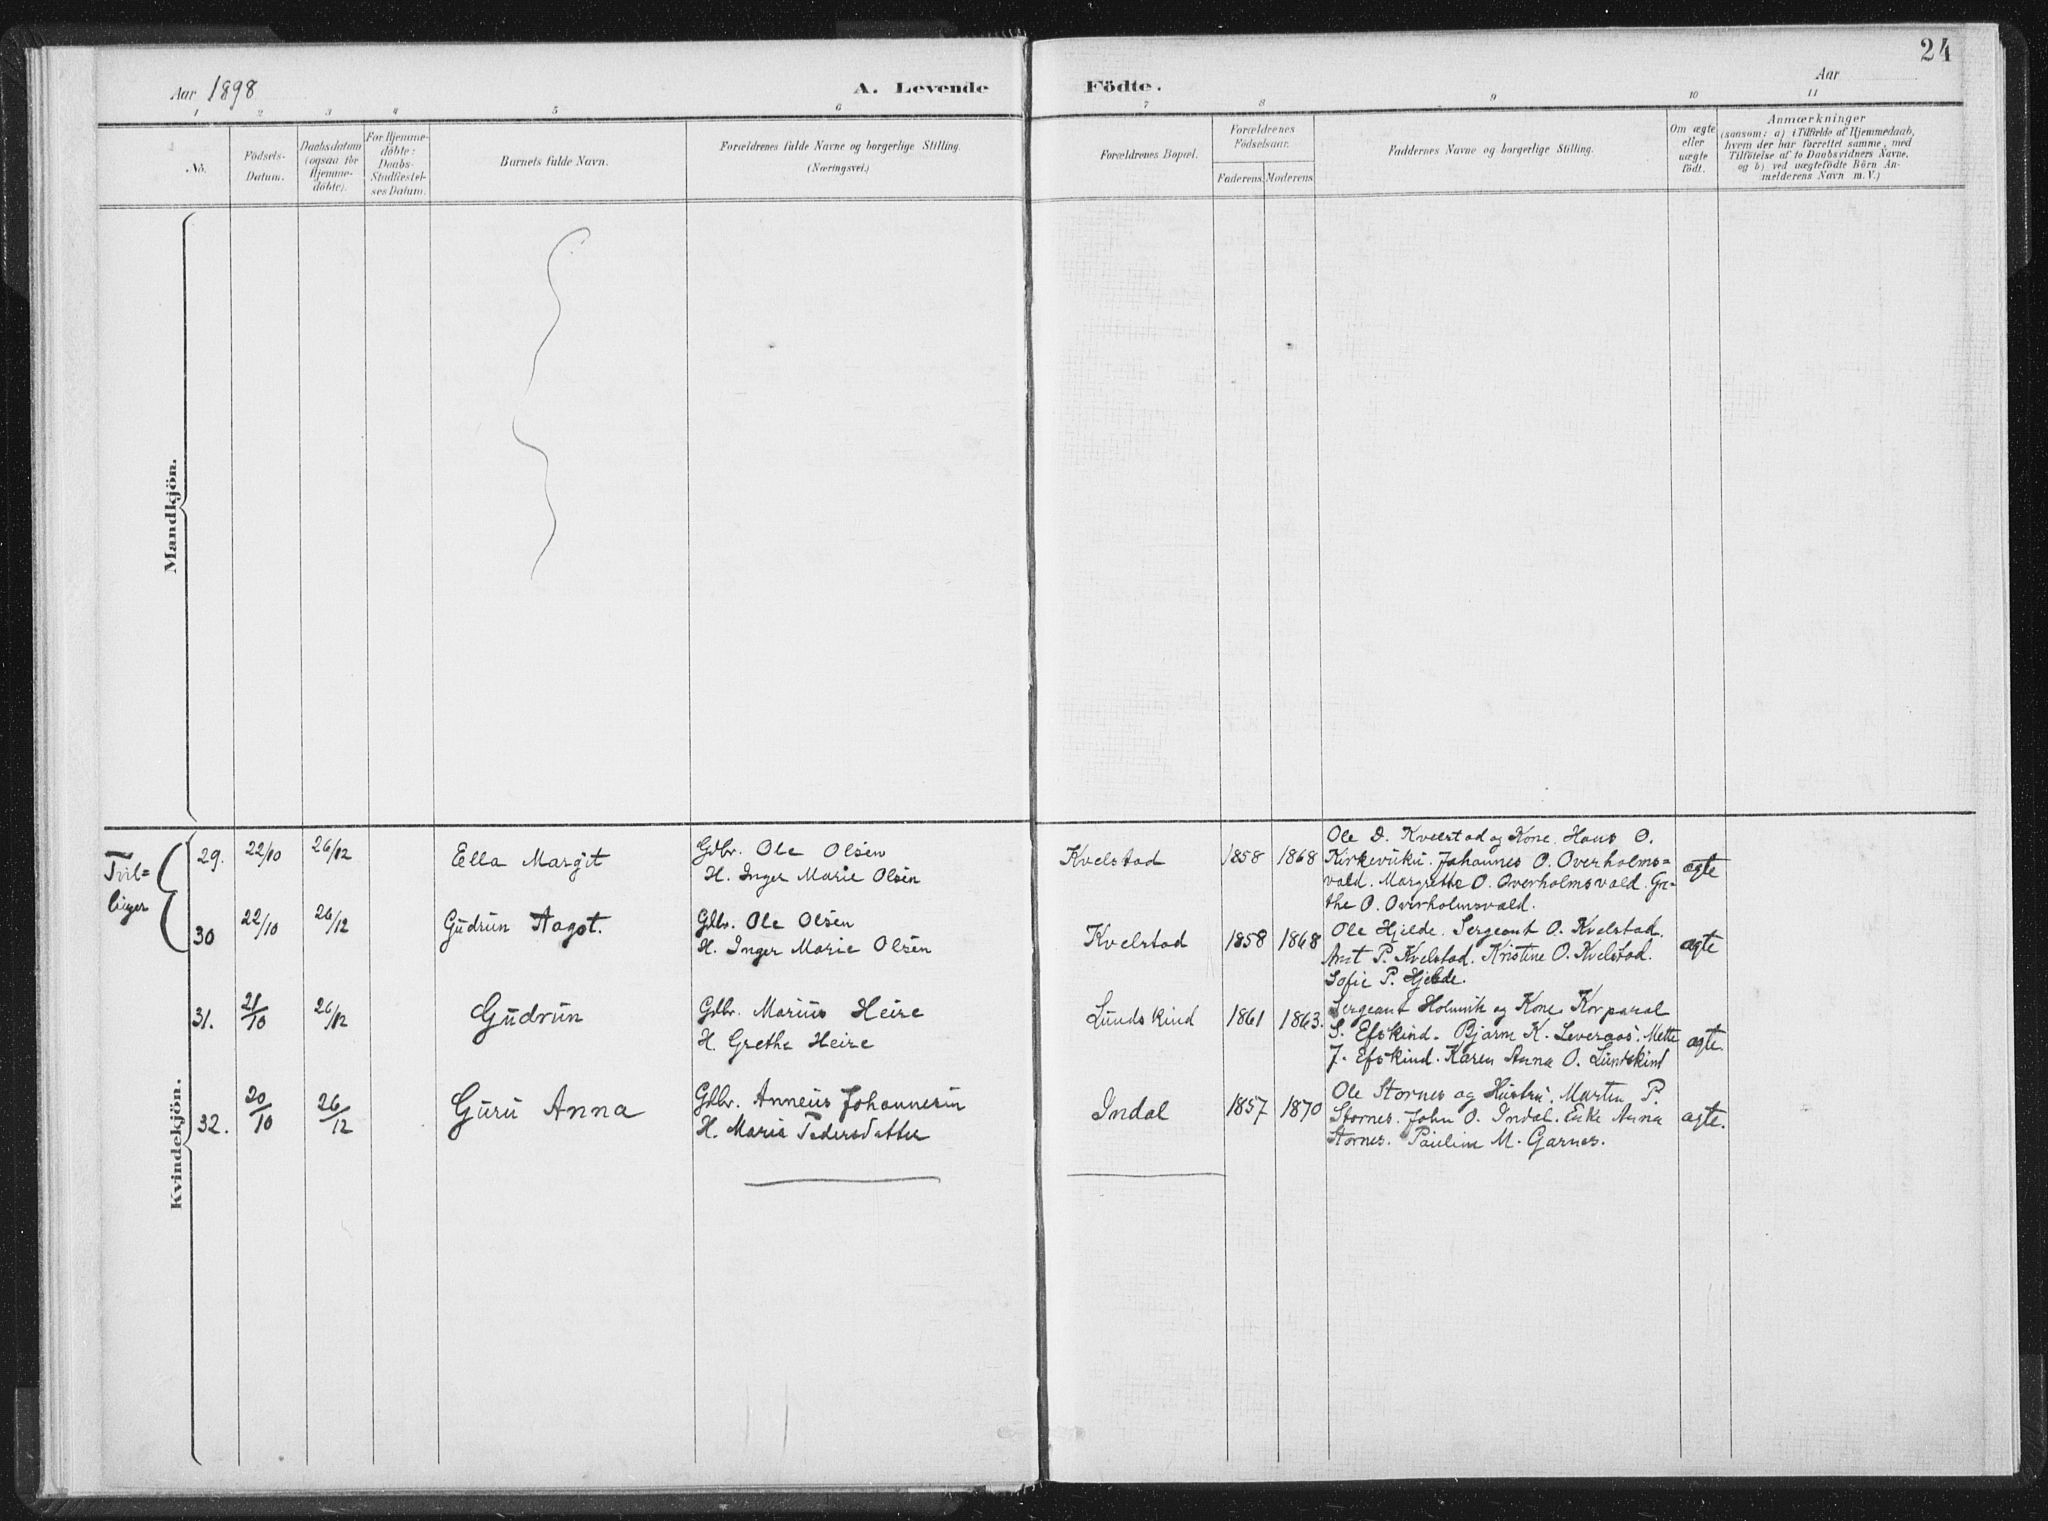 24
Aar 1898
A. Levende Födte.
Aar
1 2 3 4 5 6 7 8 9 10 11
No.
Födsels-
Datum.
Daabsdatum
(ogsaa for
Hjemme-
döbte).
For Hjemme-
döbte:
Daabs-
Stadfæstel-
ses Datum.
Barnets fulde Navn.
Forældrenes fulde Navne og borgerlige Stilling.
(Næringsvei.)
Forældrenes Bopæl.
Forældrenes
Födselsaar.
Faderens. Moderens.
Faddernes Navne og borgerlige Stilling.
Om ægte
eller
uægte
födt.
Anmærkninger
(saasom: a) i Tilfælde af Hjemmedaab,
hvem der har forrettet samme, med
Tilföielse af to Daabsvidners Navne,
og b) ved uægtefödte Börn An-
melderens Navn m. V.)
Mandkjön.
Kvindekjön.
Tvil-
linger
29. 22/10 26/12 Ella Margit
Gdbr. Ole Olsen
H. Inger Marie Olsen
Kvelstad 1858 1868
Ole D. Kvelstad og Kone. Hans O.
Kirkevuku. Johannes O. Overholms=
vald. Margrethe O. Overholmsvald. Gre-
the O. Overholmsvald.
ægte
30 22/10 26/12 Gudrun Aagot.
Gdbr. Ole Olsen
H. Inger Marie Olsen
Kvelstad 1858 1868
Ole Hjelde. Sergeant O. Kvelstad.
Arnt P. Kvelstad. Kristine O. Kvelstad.
Sofie P. Hjelde.
ægte
31. 21/10 26/12 Gudrun
Gdbr. Marius Heire
H. Grethe Heire
Lundskind 1861 1863.
Sergeant Holmvik og Kone. Korporal
S. Efskind. Bjarne K. Leveraas. Mette
J. Efskind. Karen Anna O. Lundskind
ægte.
32. 20/10 26/12 Guru Anna
Gdbr. Anneus Johannesen
H. Maria Pedersdatter
Indal 1857 1870
Ole Stornes og Hustru. Marten P.
Stornes. John O. Indal. Anna
Stornes. Pauline M. Garnes.
ægte.